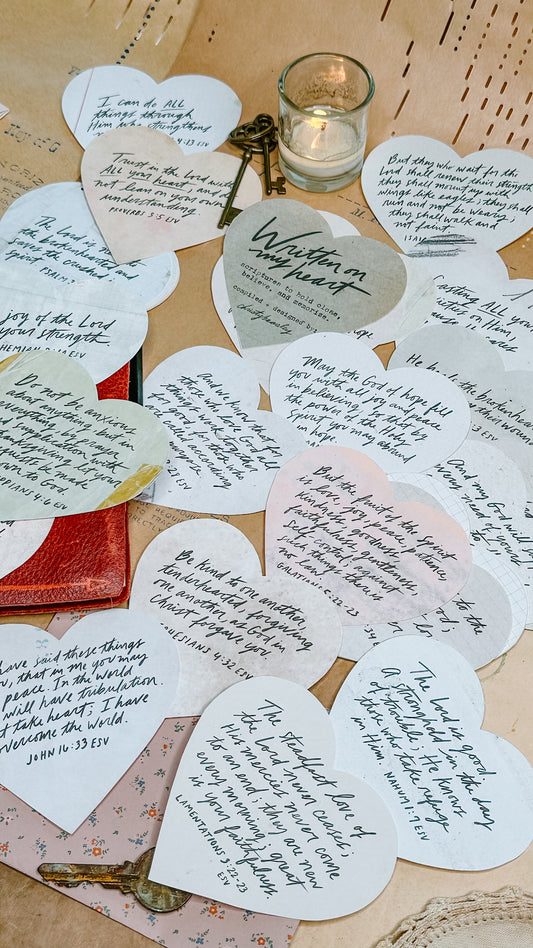 I can do ALL
things through
Him who strengthens
4:13 ESV
Trust in the Lord with
ALL your heart, and do
not lean on your own
understanding.
PROVERBS 3:5 ESV
But they who wait for the
Lord shall renew their strength;
they shall mount up with
wings like eagles; they shall
run and not be weary;
they shall walk and
not faint.
ISAI
The Lord is
the brokenhearted and
saves the crushed in
Spirit
PSALM
Written on
my heart
scriptures to hold close,
believe, and memorize.
compiled + designed by
hope
Casting ALL your
anxieties on Him,
joy of the Lord
your strength
8:10 ESV
He heals the brokenhearted
their wounds
ESV
Do not be anxious
about anything but in
everything by prayer
and supplication with
thanksgiving let your
requests be made
known to God.
PHILIPPIANS 4:6 ESV
And we know that for
those who love God all
things work together
for good, for those who
are called according
ESV
May the God of hope fill
you with all joy and peace
in believing, so that by
the power of the Holy
Spirit you may abound
in hope.
And my God will
every need
to
But the fruit of the Spirit
is love, joy, peace, patience,
kindness, goodness,
faithfulness, gentleness,
self-control; against
such things there is
no law.
GALATIANS 5:22-23
Be kind to one another,
tenderhearted, forgiving
one another, as God in
Christ forgave you.
EPHESIANS 4:32 ESV
have said these things
that in me you may
peace. In the world
will have tribulation.
take heart; I have
overcome the world.
JOHN 16:33 ESV
The Lord is good
A stronghold in the day
of trouble; He knows
those who take refuge
in Him. NAHUM 1:7 ESV
The steadfast love of
the Lord never ceases;
His mercies never come
to an end; they are new
every morning; great
is your faithfulness.
LAMENTATIONS 3:22-23
ESV